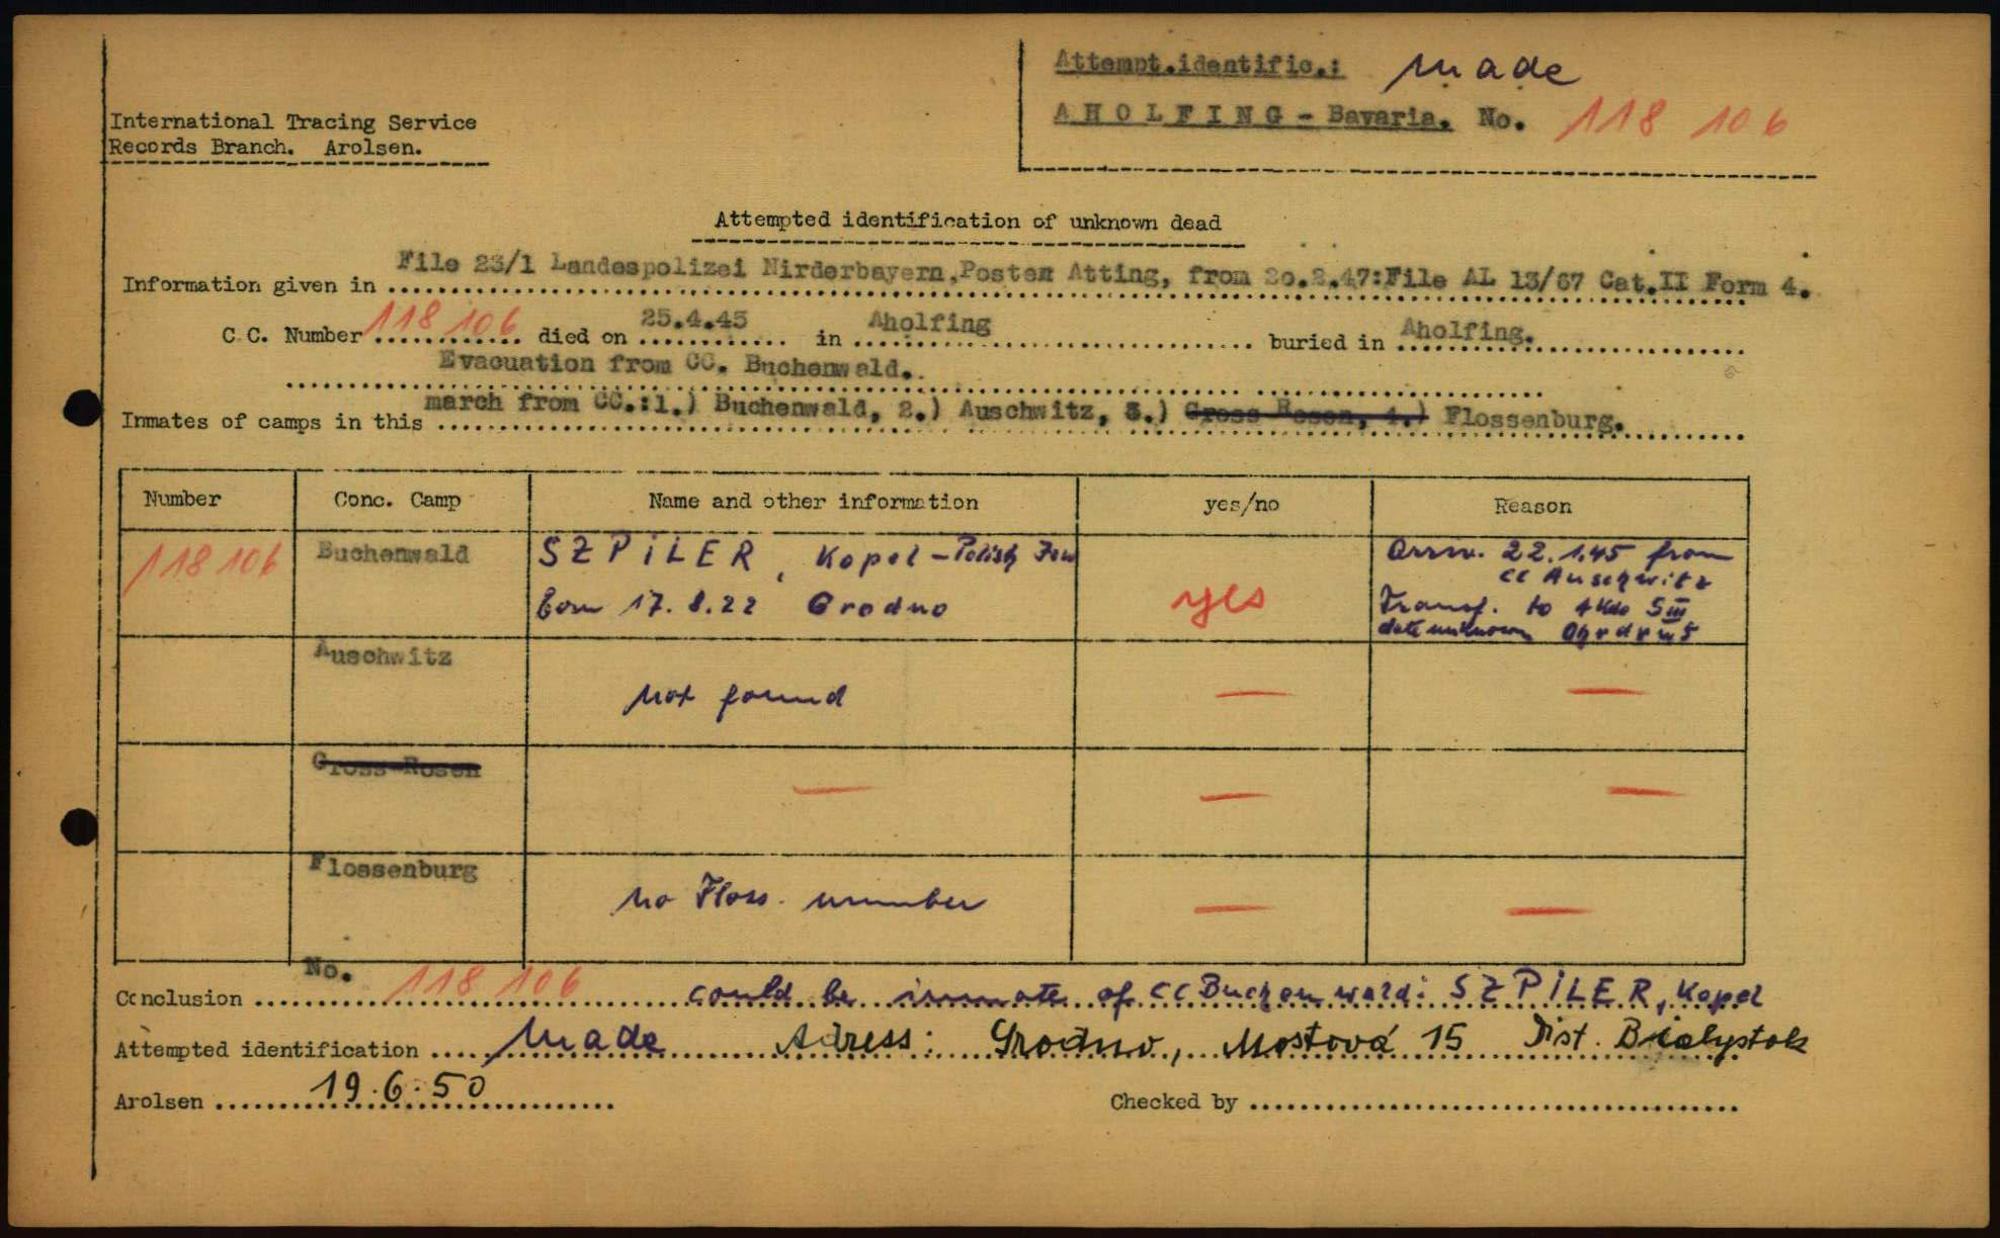 Attempt.identific.: Made
AHOLFING - Bavaria. No. 118 106
International Tracing Service
Records Branch. Arolsen.
Attempted identification of unknown dead
Information given in File 23/1 Landespolizei Nirderbayern, Posten Atting, from 20.2.47: File AL 13/67 Cat.II Form 4.
C.C. Number 118 106 died on 25.4.45 in Aholfing buried in Aholfing.
Evacuation from CC. Buchenwald.
Inmates of camps in this march from CC.:1.) Buchenwald, 2.) Auschwitz, 3.) Gross Rosen, 4.) Flossenburg.
Number Conc. Camp Name and other information yes/no Reason
118 106 Buchenwald SZPILER, Kopel - Polish Jew
born 17.8.22 Grodno
yes
Arriv. 22.1.45 from
CC Auschwitz
Transf. to AKdo SIII
date unknown Ohrdruf
Auschwitz not found — —
Gross-Rosen — — —
Flossenburg no Floss. number — —
Conclusion No. 118 106 could be inmate of CC Buchenwald: SZPILER, Kopel
Attempted identification Made Adress: Grodno, Mostová 15 Dist. Bialystok
Arolsen 19.6.50 Checked by